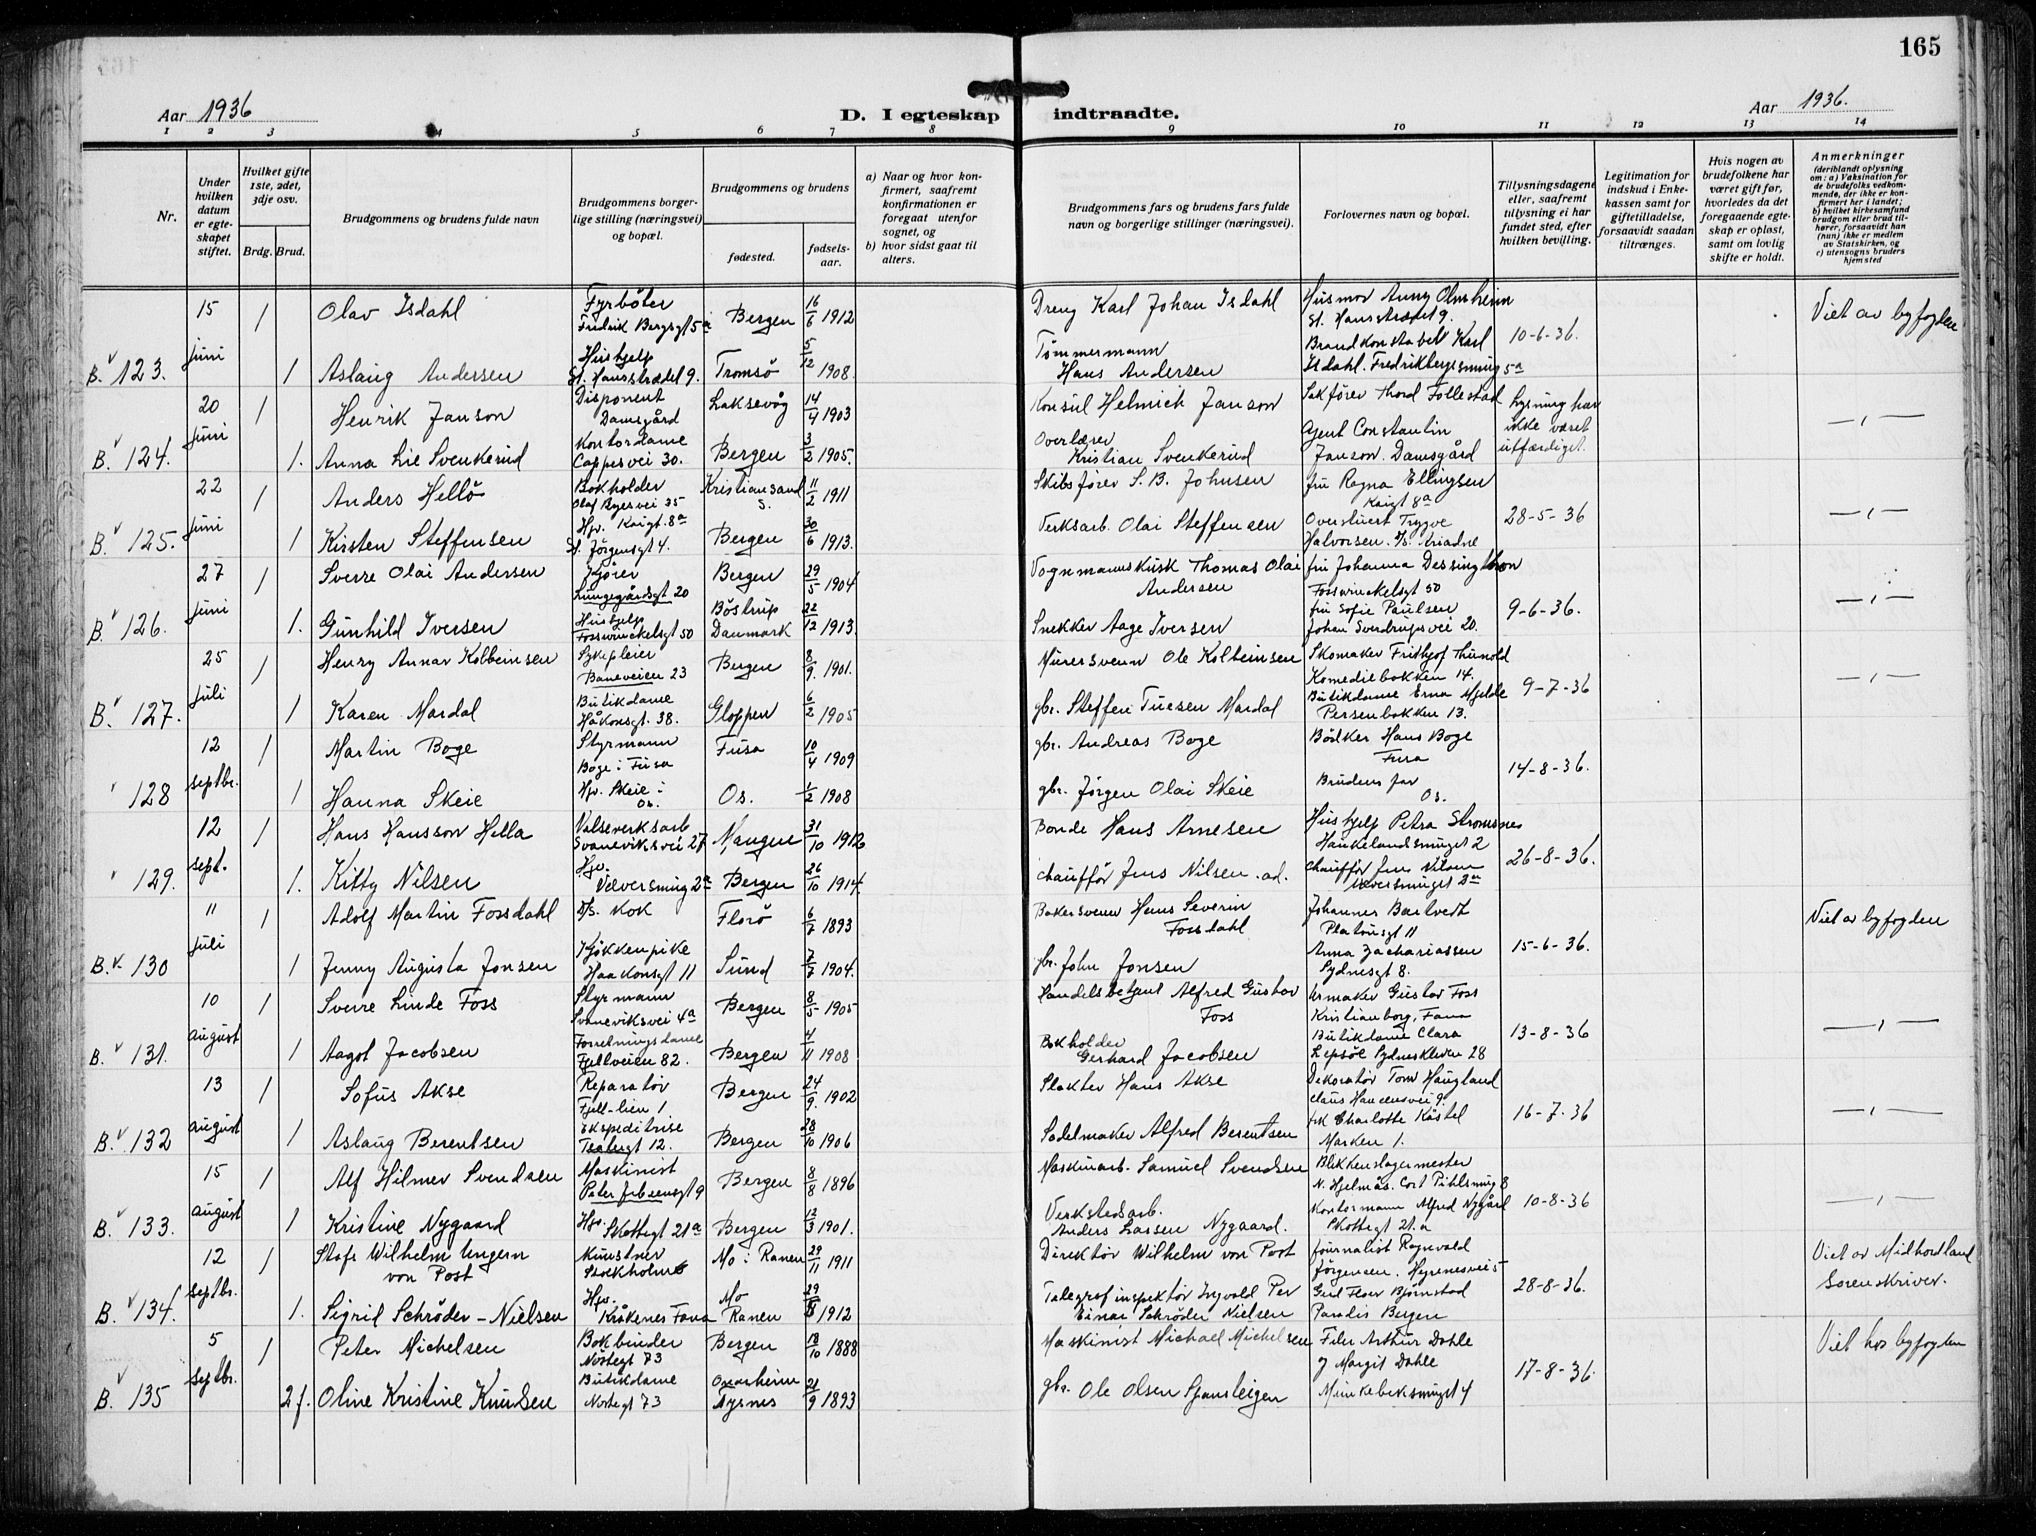 165
Aar 1936
D. I egteskap indtraadte.
Aar 1936.
1 2 3 4 5 6 7 8 9 10 11 12 13 14
Nr.
Under hvilken datum er egteskapet stiftet.
Hvilket gifte 1ste, 2det, 3dje osv.
Brdg. Brud.
Brudgommens og brudens fulde navn
Brudgommens borgerlige stilling (næringsvei) og bopæl.
Brudgommens og brudens
fødested.
fødselsaar.
a) Naar og hvor konfirmert, saafremt konfirmationen er foregaat utenfor sognet, og
b) hvor sidst gaat til alters.
Brudgommens fars og brudens fars fulde navn og borgerlige stillinger (næringsvei).
Forlovernes navn og bopæl.
Tillysningsdagene eller, saafremt tillysning ei har fundet sted, efter hvilken bevilling.
Legitimation for indskud i Enkekassen samt for giftetilladelse, forsaavidt saadan tiltrænges.
Hvis nogen av brudefolkene har været gift før, hvorledes da det foregaaende egteskap er opløst, samt om lovlig skifte er holdt.
Anmerkninger (deriblandt oplysning om: a) Vaksination for de brudefolks vedkommende, der ikke er konfirmert her i landet; b) hvilket kirkesamfund brudgom eller brud tilhører, forsaavidt han (hun) ikke er medlem av Statskirken, og c) utensogns bruders hjemsted
15 1 Olav Isdahl Fyrbøter Fredrik Bergsgt 5a Bergen 16/6 1912 Dreng Karl Johan Isdahl Husmor Anny Olmheim St. Hansstrædet 9. Viet av byfogden
B. 123. juni 1 Aslaug Andersen Hushjelp St. Hansstrædet 9. Tromsø 5/12 1908. Tømmermann Hans Andersen Brandkonstabel Karl Isdahl. Fredrikbergsmug 5a 10-6-36.
20 1 Henrik Janson Disponent Damsgård Laksevåg 14/4 1903 Konsul Helmich Janson Sakfører Thord Follestad Lysning har ikke været utfærdiget. — " —
B. 124. juni 1. Anna Lie Svenkerud Kontordame Cappesvei 30. Bergen 3/2 1905. Overlærer Kristian Svenkerud Agent Constantin Janson. Damsgård
22 1 Anders Hellö Bokholder Olaf Ryesvei 35 Kristiansand S. 11/2 1911 Skibsfører S. B. Johnsen fru Ragna Ellingsen Kaigt 8a — " —
B. 125. juni 1 Kirsten Steffensen Hjv. Kaigt. 8a St. Jørgensgt 4. Bergen 30/6 1913. Verksarb. Olai Steffensen Overstuert Trygve Halvorsen. D/S. Ariadne 28-5-36
27 1 Sverre Olai Andersen Kjører Lungegårdsgt 20 Bergen 29/5 1904 Vognmannskusk Thomas Olai Andersen fru Johanna Dessingthon Fosswinckelsgt 50 — " —
B. 126. juni 1. Gunhild Iversen Hushjelp Fosswinckelsgt 50 Böstrup Danmark 22/12 1913. Snekker Aage Iversen fru Sofie Paulsen Johan Sverdrupsvei 20. 9-6-36.
25 1 Henry Annar Kolbeinsen Sykepleier Baneveien 23 Bergen 8/9. 1901. Murersvenn Ole Kolbeinsen Skomaker Fridtjof Thunold Komediebakken 14. — " —
B. 127. juli 1 Karen Mardal Butikdame Håkonsgt. 38. Gloppen 6/2 1905 gbr. Steffen Tuesen Mardal Butikdame Erna Mjelde Persenbakken 13. 9-7-36
12 1 Martin Boge Styrmann Boge i Fusa Fusa 10/4 1909 gbr. Andreas Boge Bödker Hans Boge Fusa
128 septbr. 1 Hanna Skeie Hjv. Skeie i Os. Os. 1/2 1908 gbr. Jørgen Olai Skeie Brudens far Os. 14-8-36.
12 1 Hans Hansson Hella Valseverksarb Svaneviksvei 27 Mangen 31/10 1912 Bonde Hans Arnesen Hushjelp Petra Stromsnes Haukelandsmuget 2
129. sept. 1. Kitty Nilsen Hjv. Velversmug 2a Bergen 26/10 1914. chauffør Jens Nilsen. ad. chauffør Jens Nilsen 26-8-36.
11 1 Adolf Martin Fossdahl D/s. Kok Florø 6/7 1893 Bakersvenn Hans Severin Fossdahl Johannes Barlvedt Platousgt 11 Viet av byfogden
B. 130 juli 1 Jenny Augusta Jonsen Kjøkkenpike Haakonsgt 11 Sund 7/7 1904. gbr. John Jonsen Anna Zachariassen Sydnesgt 8. 15-6-36.
10 1 Sverre Linde Foss Styrmann Svaneviksvei 4a Bergen 8/5 1905 Handelsbetjent Alfred Gustav Foss Urmaker Gustav Foss Kristianborg, Fana — " —
B. 131. august 1 Aagot Jacobsen Forretningsdame Fjellveien 82. Bergen 4/11 1908 Bokholder Gerhard Jacobsen Butikdame Clara Lepsöe Sydneskleiven 28 13-8-36
13 1 Sofus Akse Reparatør Fjell-lien 1 Bergen 24/9. 1902 Slakter Hans Akse Dekoratør Tom Haugland Claus Hansensvei 9. — " —
B. 132 august 1 Aslaug Berentsen Ekspeditrise Teatergt 12. Bergen 28/10 1906 Sadelmaker Alfred Berentsen frk Charlotte Kåstel Marken 1. 16-7-36
15 1 Alf Hilmer Svendsen Maskinist Peter Jebsensgt 9 Bergen 8/8 1896 Maskinarb. Samuel Svendsen Blikkenslagermester N. Hjelmås. Cort Pihlsmug 8 — " —
B. 133. august 1 Kristine Nygaard Hjv. Skottegt 21a Bergen 12/3 1901. Verkstedsarb. Anders Lassen Nygaard. Kontormann Alfred Nygård Skottegt 21.a 10-8-36
12 1 Stafs Wilhelm Ungern von Post Kunstner Stockholm Mo i Ranen 29/11 1911 Direktør Wilhelm von Post Journalist Ragnvald Jørgensen. Viet av Midhordland Sorenskriver.
B. 134. septbr. 1. Sigrid Schröder-Nielsen Hjv. Kråkenes Fana Mo Ranen 1912 Telegrafinspektør Ingvald Per Einar Schröder Nielsen Bjørnstad Paradis Bergen 28-8-36.
5 1 Peter Michelsen Bokbinder Nöstegt 73 Bergen 18/10 1888 Maskinist Michael Michelsen Filer Arthur Dahle Viet hos byfogden
B. 135 septbr. 2 f. Oline Kristine Knudsen Butikdame Nöstegt 73 Onarheim Tysnes 21/9 1893 gbr. Ole Olsen Spansleigen og Margit Dahle Munkebeksmuget 4 17-8-36.